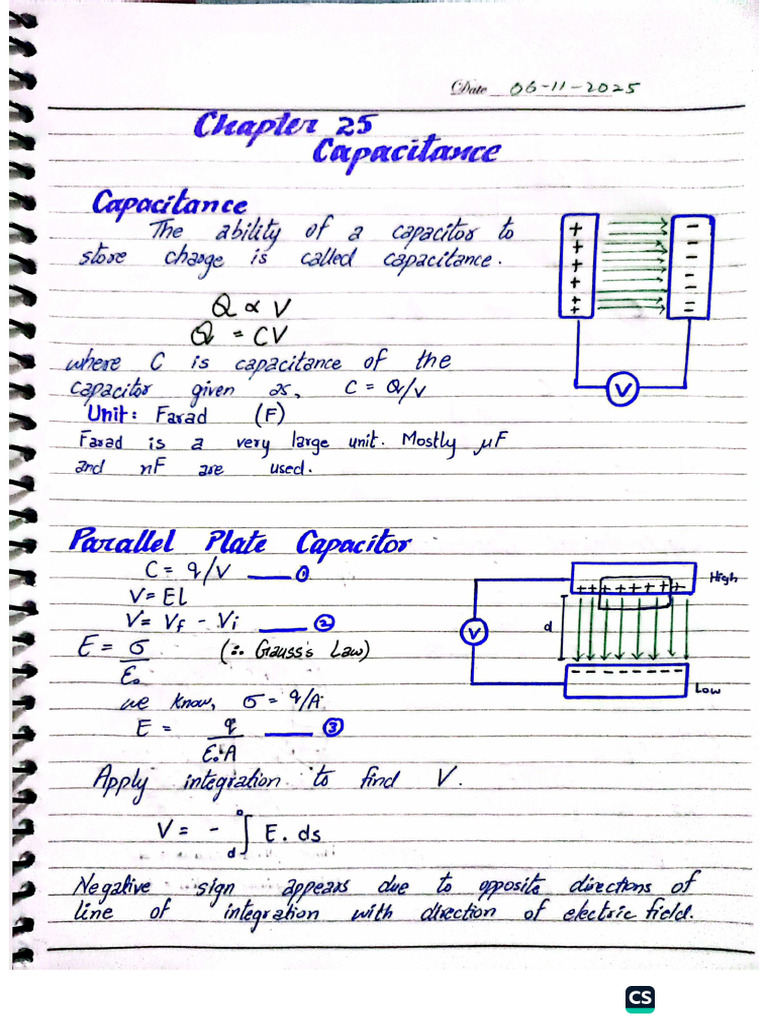 Date 06-11-2025
Chapter 25
Capacitance
Capacitance
The ability of a capacitor to
store charge is called capacitance.
Q ∝ V
Q = CV
where C is capacitance of the
capacitor given as, C = Q/V
Unit: Farad (F)
Farad is a very large unit. Mostly μF
and nF are used.
+ + + + + +
- - - - - =
V
Parallel Plate Capacitor
C = q/V ___ ①
V = El
V = Vf - Vi ___ ②
E = σ/ε₀ (∵ Gauss's Law)
we know, σ = q/A
E = q/ε₀A ___ ③
Apply integration to find V.
V = - ∫_d^0 E. ds
Negative sign appears due to opposite directions of
line of integration with direction of electric field.
High
+ + + + + + + + +
V
d
- - - - - - - - - -
Low
CS